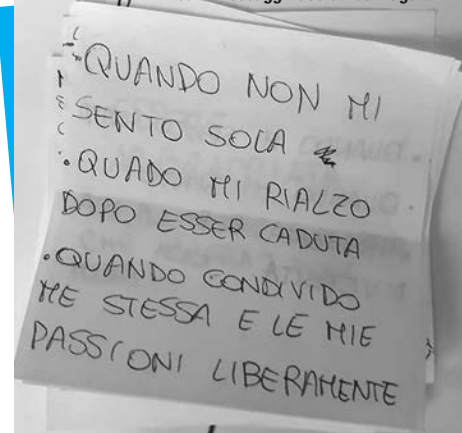 •QUANDO NON MI
SENTO SOLA
•QUADO MI RIALZO
DOPO ESSER CADUTA
•QUANDO CONDIVIDO
ME STESSA E LE MIE
PASSIONI LIBERAMENTE